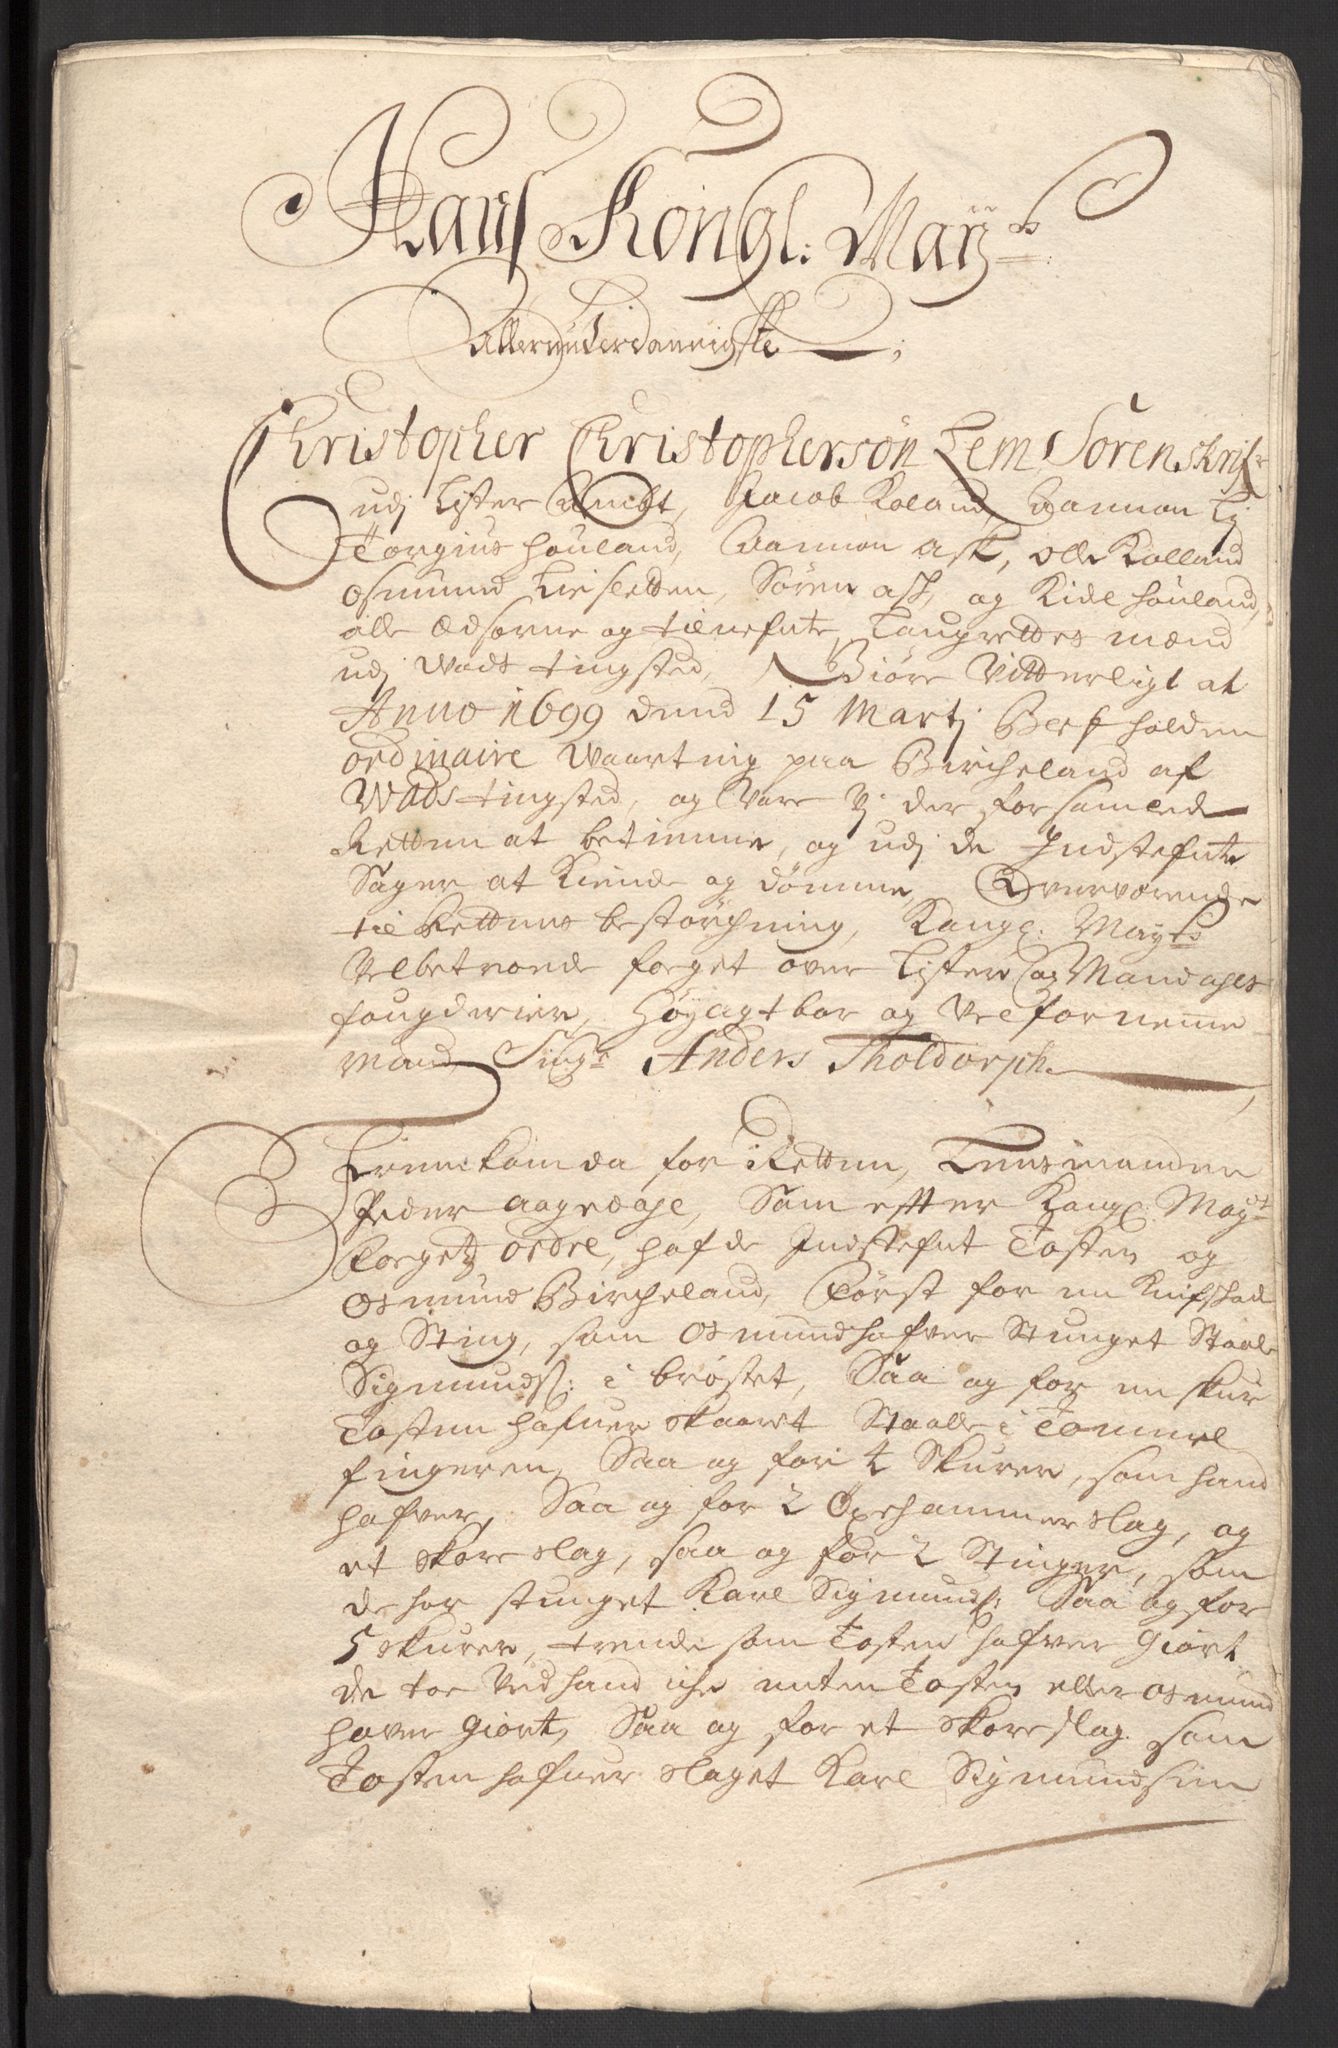 Hans Kongl: May:ts
Allerunderdannigste
Christopher Christophersøn Lem Sorenskrifr
udj Lister Ambt, Jacob Roland, Aamon Lj
Torgius Houland, Aamon Ask, olle Kalland
osmund Liesletten, Søren Ask, og Kidl Houland,
alle Edsorne og tilnefnte Laugrettes mænd
udj Wads tingsted, Giøre Vitterligt at
Anno 1699 dend 15 Martj Blef holden
ordinaire Waarting paa Bircheland af
Wads tingsted, og Vare Vj der forsamled
Retten at betienne, og udj de Indstefnte
Sager at Kiende og dømme, Overværende
til Rettens bestørchning, Kongl: Mayts
Velbetroede foeget over Lister og Mandahls
fougderier, Høyagtbar og Velfornemme
Mand Singr Anders Tholdorph.
Fremkom da for Retten, Lensmanden
Peder Aagedahl, Som efter Kongl: Mayts
foegetz ordre, hafde Indstefnt Tosten og
Osmund Bircheland, Først for en Knifskade
og Sting, som Osmund hafver Stunget Staale
Sigmunds: i brøstet, Saa og for en skur
Tosten hafuer skaaret Staalle i Tommel
fingeren, Saa og for 4 Skurer, som hand
hafver, Saa og for 2 Øxehammer slag, og
et skore slag, saa og for 2 Stinger, som
de har stunget Karl Sigmunds: Saa og for
5 skurer, trende som Tosten hafver Giort
de toe Ved hand iche enten Tosten eller Osmund
haver Giort, Saa og for et skore slag som
Tosten hafuer slaget Karl Sigmundsen